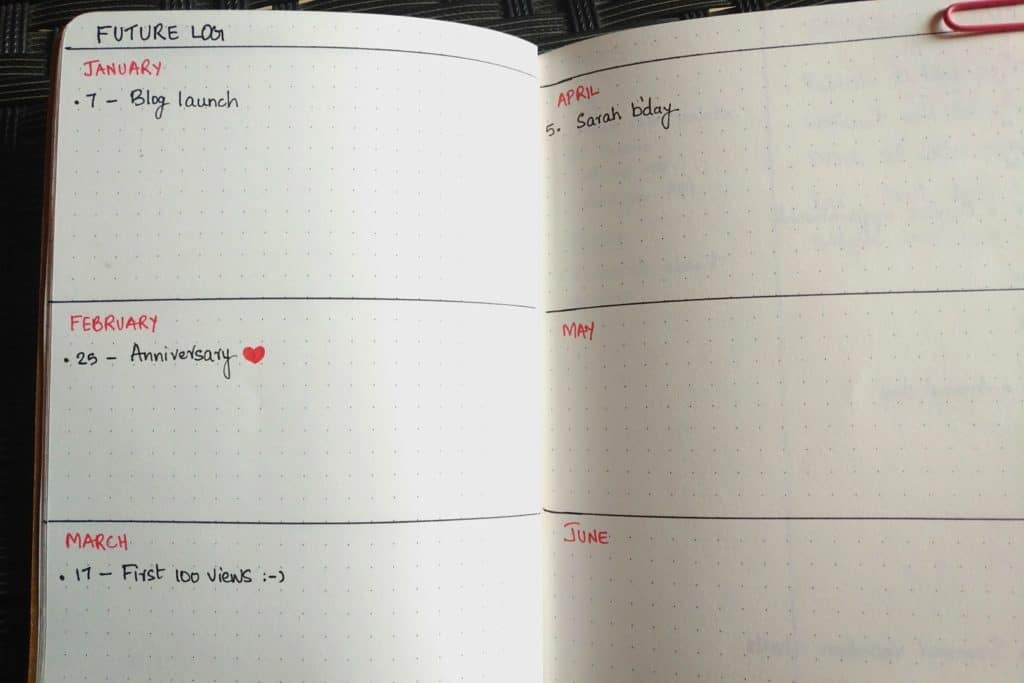 FUTURE LOG
JANUARY
• 7 – Blog launch
FEBRUARY
• 25 – Anniversary ❤
MARCH
• 17 – First 100 views :-)
APRIL
5. Sarah b'day
MAY
JUNE